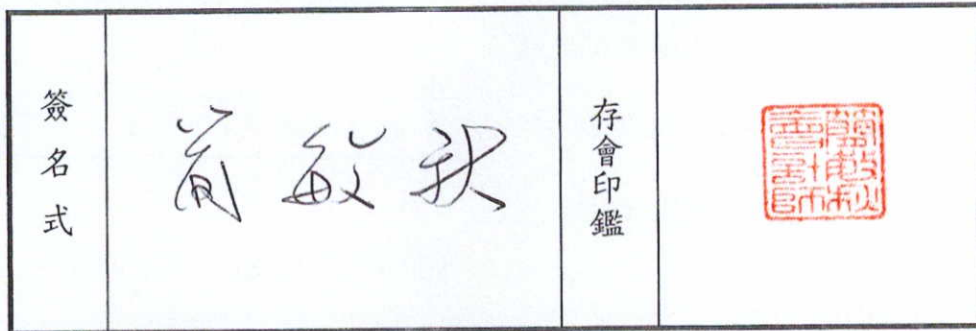 簽名式
簡敏秋
存會印鑑
簡敏秋
會計師